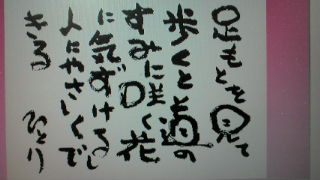 足もとを見て
歩くと道の
すみに咲く花
に気ずける。
人にやさしくで
きる ひとり